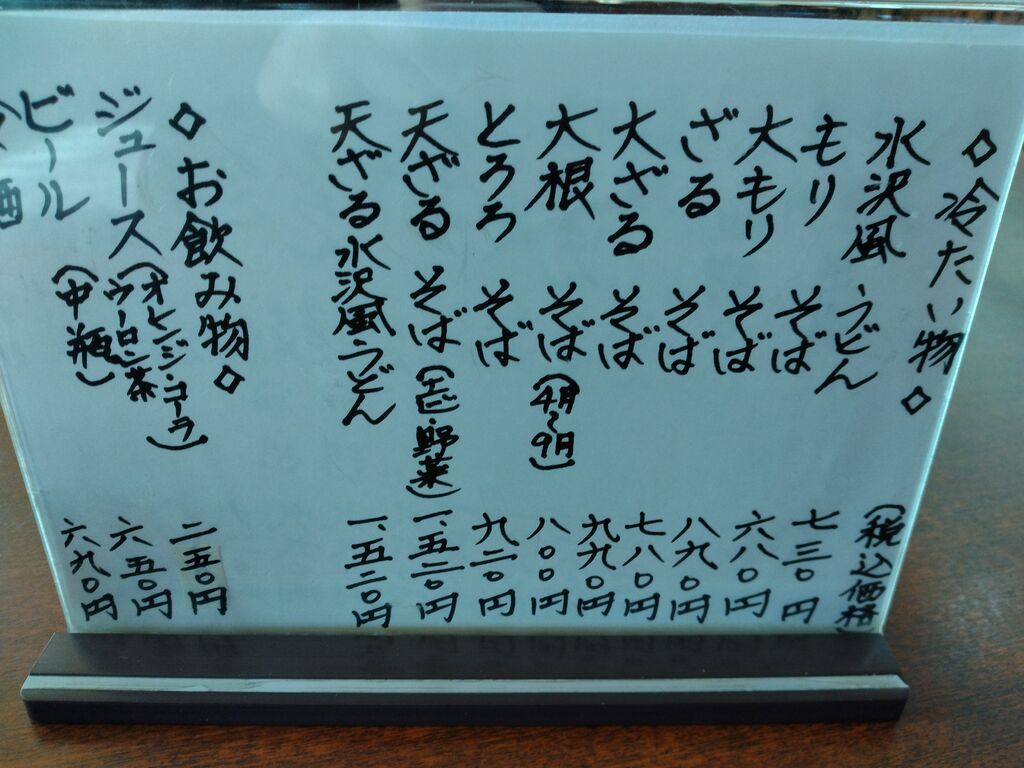 ◇冷たい物◇
(税込価格)
水沢風うどん 七三〇円
もりそば 六八〇円
大もりそば 八九〇円
ざるそば 七八〇円
大ざるそば 九九〇円
大根そば(4月~9月) 八〇〇円
とろろそば 九二〇円
天ざるそば(エビ・野菜) 一、五二〇円
天ざる水沢風うどん 一、五二〇円
◇お飲み物◇
ジュース(オレンジ・コーラ ウーロン茶) 二五〇円
ビール(中瓶) 六五〇円
酒 六九〇円